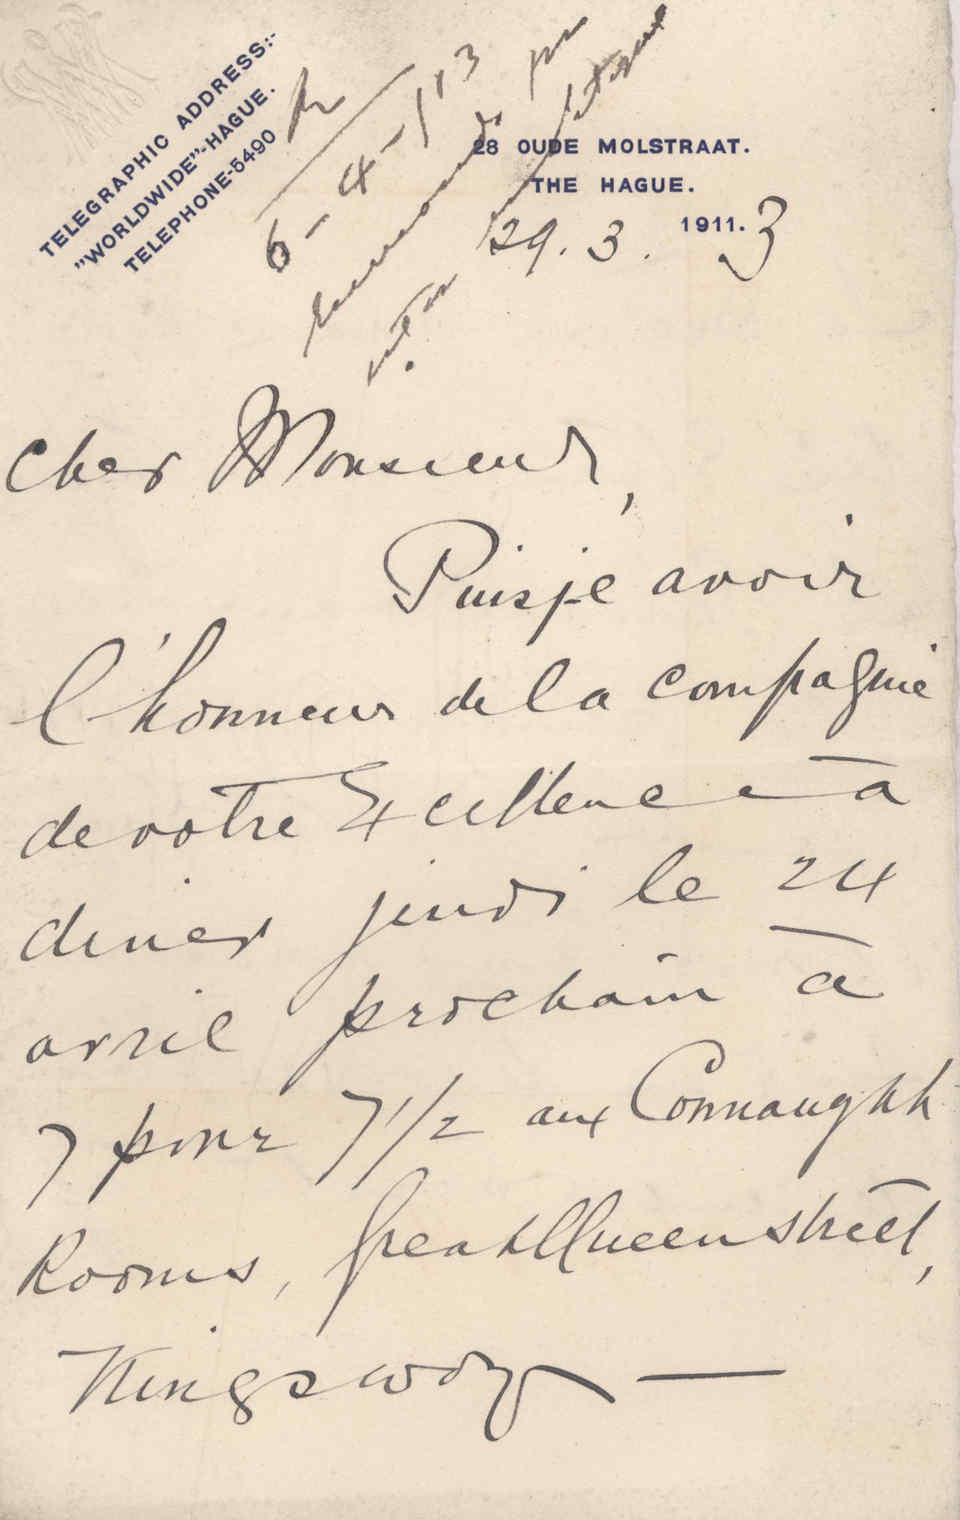 TELEGRAPHIC ADDRESS:-
"WORLDWIDE"-HAGUE.
TELEPHONE-5490
R
6-4-1913
28 OUDE MOLSTRAAT.
THE HAGUE.
29.3. 1911.3
Cher Monsieur,
Puis-je avoir
l'honneur de la compagnie
de votre Excellence à
diner jeudi le 24
avril prochain à
7 pour 7 1/2 aux Connaught
Rooms, Great Queen Street,
Kingsway —